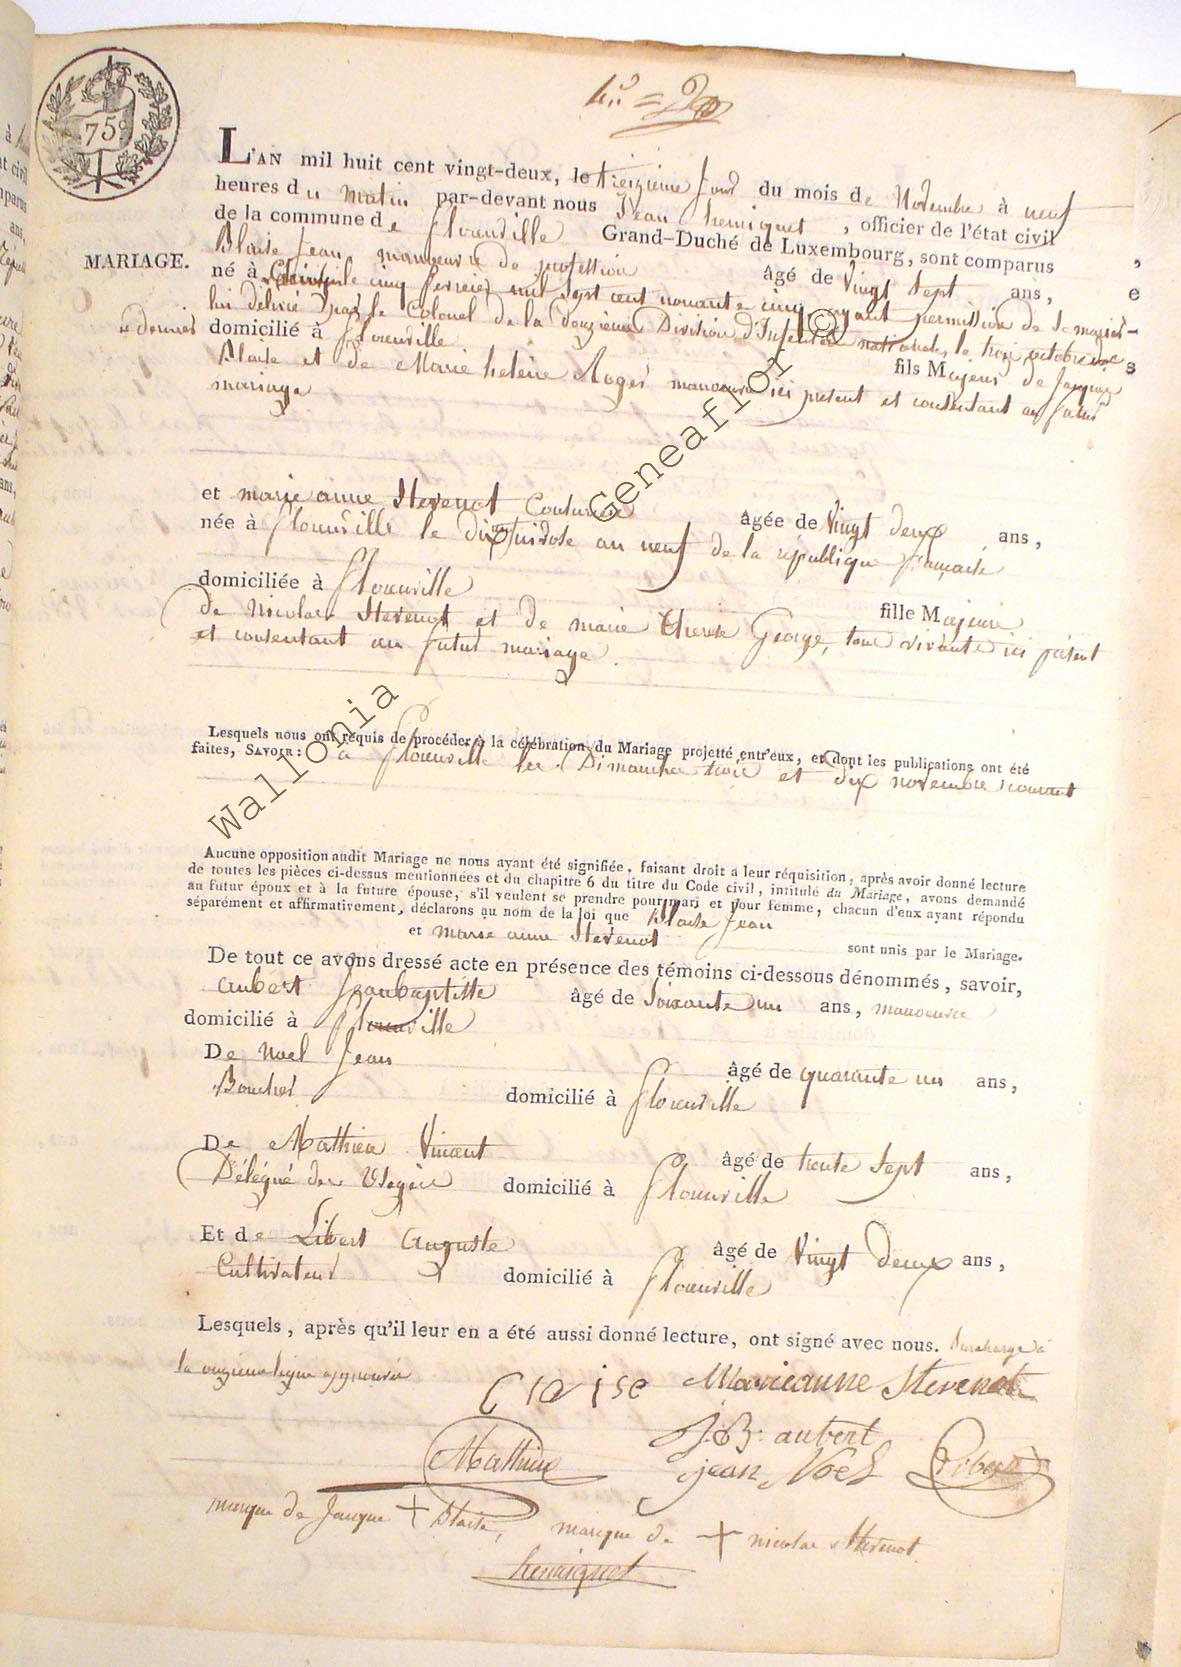 75
L'AN mil huit cent vingt-deux, le treizieme jour du mois de Novembre à neuf
heures du matin par-devant nous Jean henriquet, officier de l'état civil
de la commune de florenville Grand-Duché de Luxembourg, sont comparus
MARIAGE.
Blaise Jean manoeuvre de profession âgé de Vingt sept ans,
né à le cinq fevrier mil sept cent nonante cinq ayant permission de se marier
lui delivré par le Colonel de la Douzieme Division d'Infanterie nationale, le trois octobre
e dernier
domicilié à florenville fils Majeur de Jacque
Blaise et de Marie helene Roger manoeuvre ici present et consentant au futur
mariage
et marie anne Stevenot Couturiere âgée de Vingt deux ans,
née à florenville le dix an neuf de la république française
domiciliée à florenville fille Majeure
de Nicolas Stevenot et de marie therese George, tous vivants ici présent
et consentant au futur mariage.
Lesquels nous ont requis de procéder à la célébration du Mariage projetté entr'eux, et dont les publications ont été
faites, SAVOIR: à florenville les Dimanches trois et dix novembre courant
Aucune opposition audit Mariage ne nous ayant été signifiée, faisant droit a leur réquisition, après avoir donné lecture
de toutes les pièces ci-dessus mentionnées et du chapitre 6 du titre du Code civil, intitulé du Mariage, avons demandé
au futur époux et à la future épouse, s'il veulent se prendre pour mari et pour femme, chacun d'eux ayant répondu
séparément et affirmativement, déclarons au nom de la loi que Blaise Jean
et marie anne Stevenot sont unis par le Mariage.
De tout ce avons dressé acte en présence des témoins ci-dessous dénommés, savoir,
aubert Jeanbaptiste âgé de Soixante un ans, manoeuvre
domicilié à florenville
De Noel Jean âgé de quarante un ans,
Boucher domicilié à florenville
De Mathieu Vincent âgé de trente Sept ans,
Délégué des Usagés domicilié à florenville
Et de Libert Auguste âgé de Vingt Deux ans,
Cultivateur domicilié à florenville
Lesquels, après qu'il leur en a été aussi donné lecture, ont signé avec nous. Surcharge à
la onzieme ligne approuvée
Marieanne Stevenot
J.B. aubert
Mathieu jean Noel Libert
marque de Jacque + Blaise, marque de + nicolas Stevenot.
henriquet
Wallonia Geneaflor ©